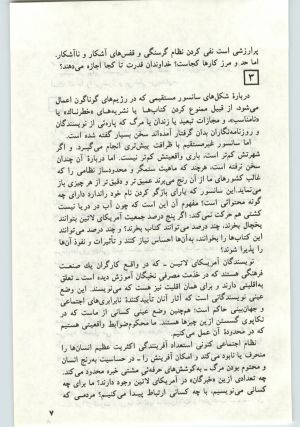 پرارزشی است نفی کردن نظام گرسنگی و قفس‌های آشکار و ناآشکار.
اما حد و مرز کارها کجاست؟ خداوندان قدرت تا کجا اجازه می‌دهند؟
۳
دربارهٔ شکل‌های سانسور مستقیمی که در رژیم‌های گوناگون اعمال
می‌شود، از قبیل ممنوع کردن کتاب‌ها یا نشریه‌های «خطرناک» یا
«نامناسب»، و مجازات تبعید یا زندان یا مرگ که پاره‌ئی از نویسندگان
و روزنامه‌نگاران بدان گرفتار آمده‌اند سخن بسیار گفته شده است.
اما سانسور غیرمستقیم با ظرافت بیش‌تری انجام می‌گیرد. و اگر
شهرتش کم‌تر است، باری واقعیتش کم‌تر نیست. اما دربارهٔ آن چندان
سخن نرفته است، هرچند که ماهیت ستمگر و محدودساز نظامی را که
غالب کشورهای ما از آن رنج می‌برند عمیق‌تر و دقیق‌تر از هر چیزی باز
می‌نماید. این سانسور که یارای بازگو کردن نام خود را ندارد دارای چه
گونه محتوائی است؟ مفهوم آن این است که چون آب در دریا نیست
کشتی هم حرکت نمی‌کند: اگر پنج درصد جمعیت آمریکای لاتین بتوانند
یخچال بخرند، چند درصد می‌توانند کتاب بخرند؟ و چند درصد می‌توانند
این کتاب‌ها را بخوانند، به‌آن‌ها احساس نیاز کنند و تأثیرات و نفوذ آن‌ها
را پذیرا شوند؟
نویسندگان آمریکای لاتین ـ که در واقع کارگران یک صنعت
فرهنگی هستند که در خدمت مصرفی نخبگان آموزش دیده است ـ تعلق
به‌اقلیتی دارند و برای همان اقلیت نیز هست که می‌نویسند. این وضع
عینی نویسندگانی است که آثار آنان تأییدکنندهٔ نابرابری‌های اجتماعی
و جهان‌بینی حاکم است؛ هم‌چنین وضع عینی کسانی از ماست که در
تکاپوی گسستن ازین چیزها هستند. ما محکوم‌ضوابط واقعیتی هستیم
که در محدودهٔ آن عمل می‌کنیم.
نظام اجتماعی کنونی استعداد آفرینندگی اکثریت عظیم انسان‌ها را
منحرف یا نابود می‌کند و امکان آفرینش را ـ در حساسیت به‌رنج انسان
و محتوم بودن مرگ ـ به‌کوشش‌های حرفه‌ئی مشتی خبره محدود می‌کند.
چه تعدادی ازین «خبرگان» در آمریکای لاتین وجود دارند؟ ما برای چه
کسانی می‌نویسیم، با چه کسانی ارتباط پیدا می‌کنیم؟ مردمی که
۷